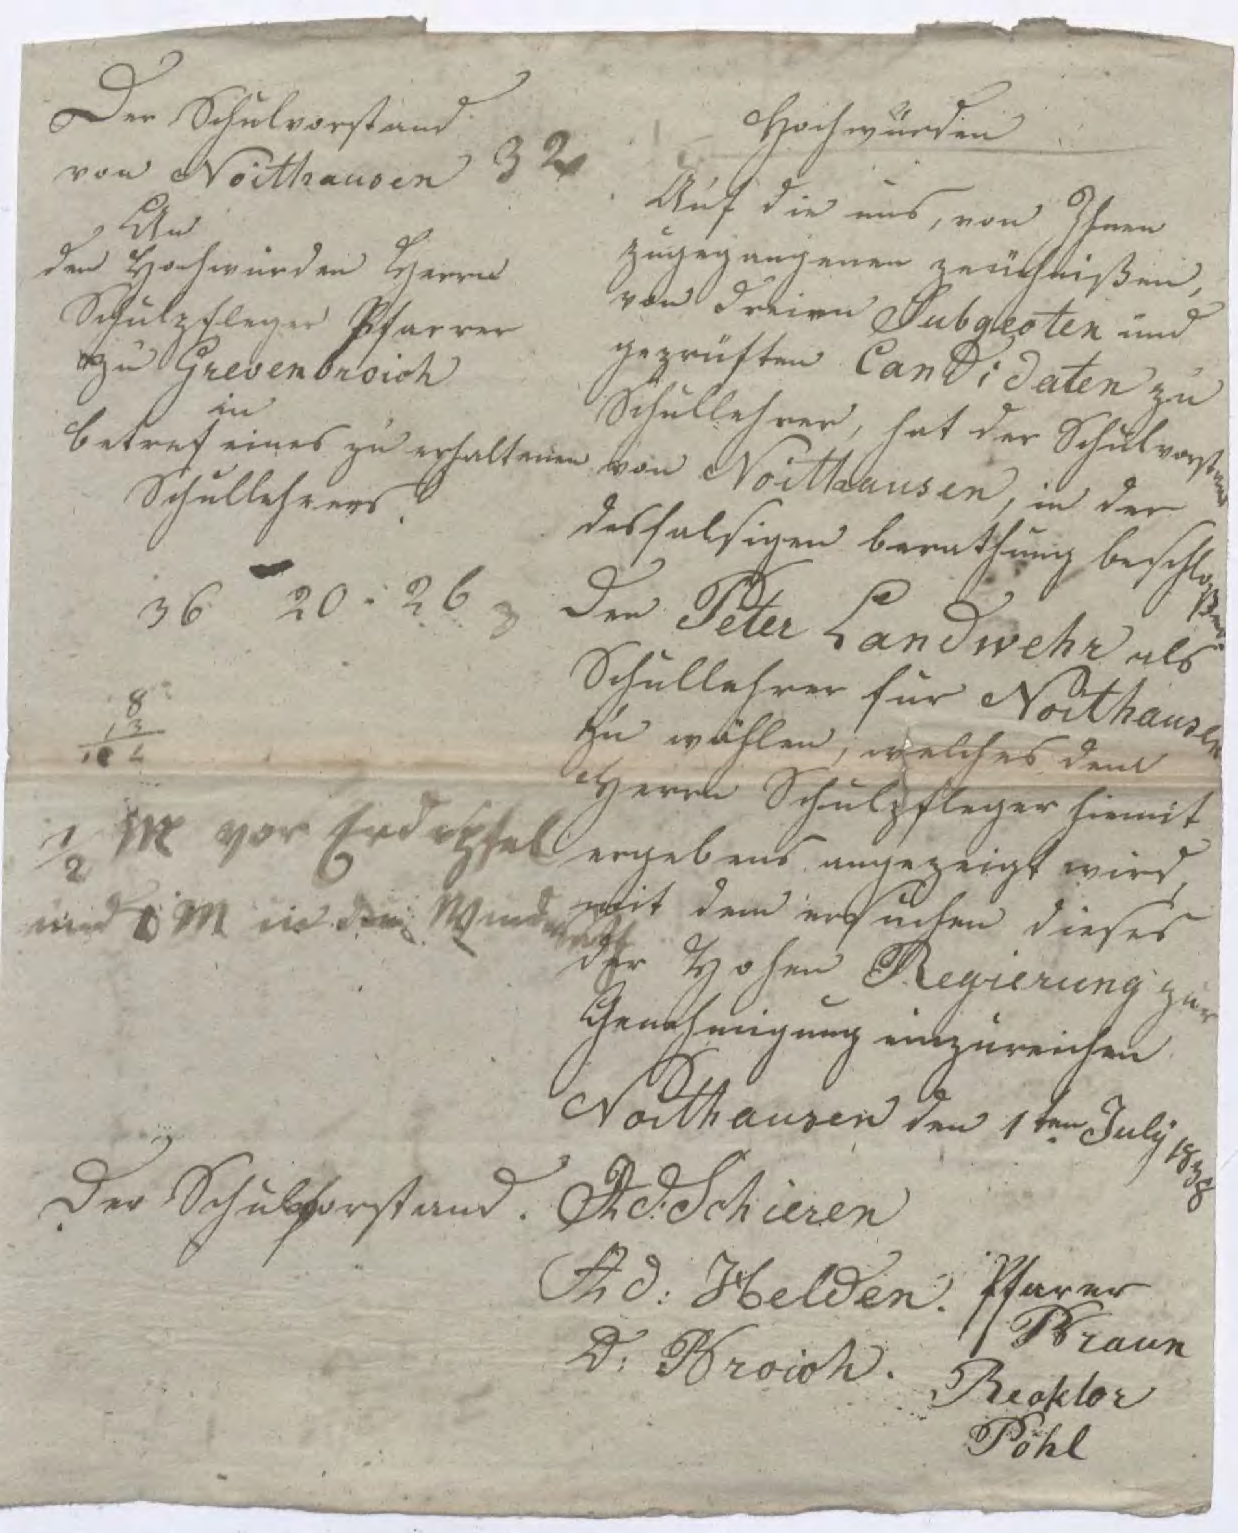 Der Schulvorstand
von Noithausen 32
An
den Hochwürden Herrn
Schulpfleger Pfarrer
zu Grevenbroich
in
betref eines zu erhaltenen
Schullehrers.
36 20 · 26
8
13
½ M vor Erdäpfel
und M in den
Hochwürden
Auf die uns, von Ihnen
zugegangenen zeüchnißen,
von dreien Subgeoten und
geprüften Candidaten zu
Schullehrer, hat der Schulvorstand
von Noithausen, in der
desfalsigen berathung beschloßen.
Den Peter Landwehr als
Schullehrer für Noithausen
zu wählen, welches dem
Herrn Schulpfleger hiemit
ergebens angezeigt wird,
mit dem ersuchen dieses
der Hohen Regierung zur
Genehmigung einzureichen
Noithausen den 1ten July 1838
Der Schulvorstand. Ad: Schieren
Ad: Helden. Pfarer
Braun
D: Broich. Reoktor
Pöhl